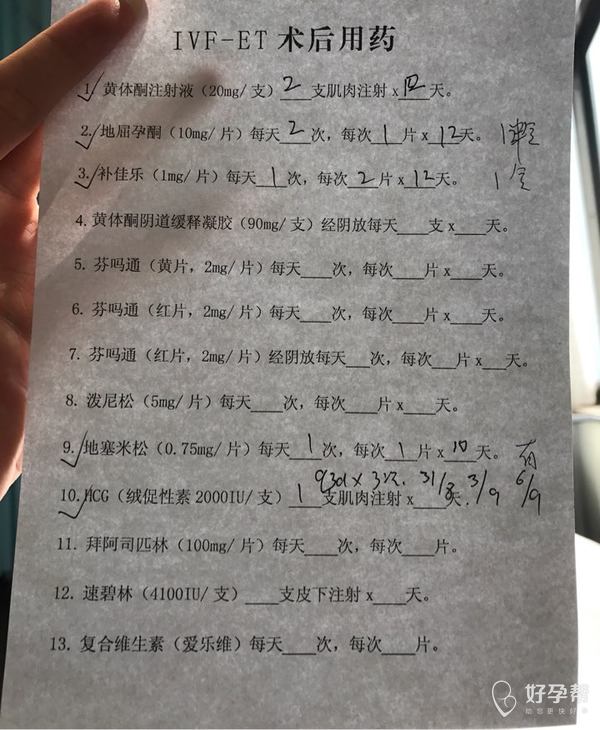 IVF-ET 术后用药
✓1. 黄体酮注射液（20mg/支）2支肌肉注射x12天。
✓2. 地屈孕酮（10mg/片）每天2次，每次1片x12天。
✓3. 补佳乐（1mg/片）每天1次，每次2片x12天。 1盒
4. 黄体酮阴道缓释凝胶（90mg/支）经阴放每天___支x___天。
5. 芬吗通（黄片，2mg/片）每天___次，每次___片x___天。
6. 芬吗通（红片，2mg/片）每天___次，每次___片x___天。
7. 芬吗通（红片，2mg/片）经阴放每天___次，每次___片x___天。
8. 泼尼松（5mg/片）每天___次，每次___片x___天。
✓9. 地塞米松（0.75mg/片）每天1次，每次1片x10天。 有
q3d x 3次. 31/8 3/9 6/9
✓10. HCG（绒促性素 2000IU/支）1支肌肉注射x___天.
11. 拜阿司匹林（100mg/片）每天___次，每次___片。
12. 速碧林（4100IU/支）___支皮下注射x___天。
13. 复合维生素（爱乐维）每天___次，每次___片。
好孕帮
助您更快好孕